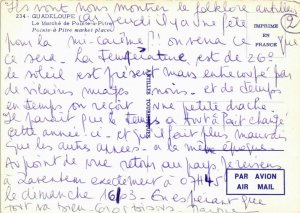 Ils vont nous montrer le folklore antillais
car jeudi il y a une fête
2
234 - GUADELOUPE
Le Marché de Pointe-à-Pitre
Pointe-à-Pitre market place
IMPRIME
EN
FRANCE
pour la mi-carême, on verra ce que
ce sera. La Température est de 26°
le soleil est présent mais entrecoupé par
de vilains nuages noirs et de temps
en temps on reçoit une petite drache.
Il paraît que le temps a
cette année-ci et qu'il fait plus mauvais
que les autres années à la même époque.
Au point de vue retour au pays je reviens
à Zaventem exactement à 07H45
le dimanche 16/03 - En espérant que
tout va bien - Gros bisous
PAR AVION
AIR MAIL